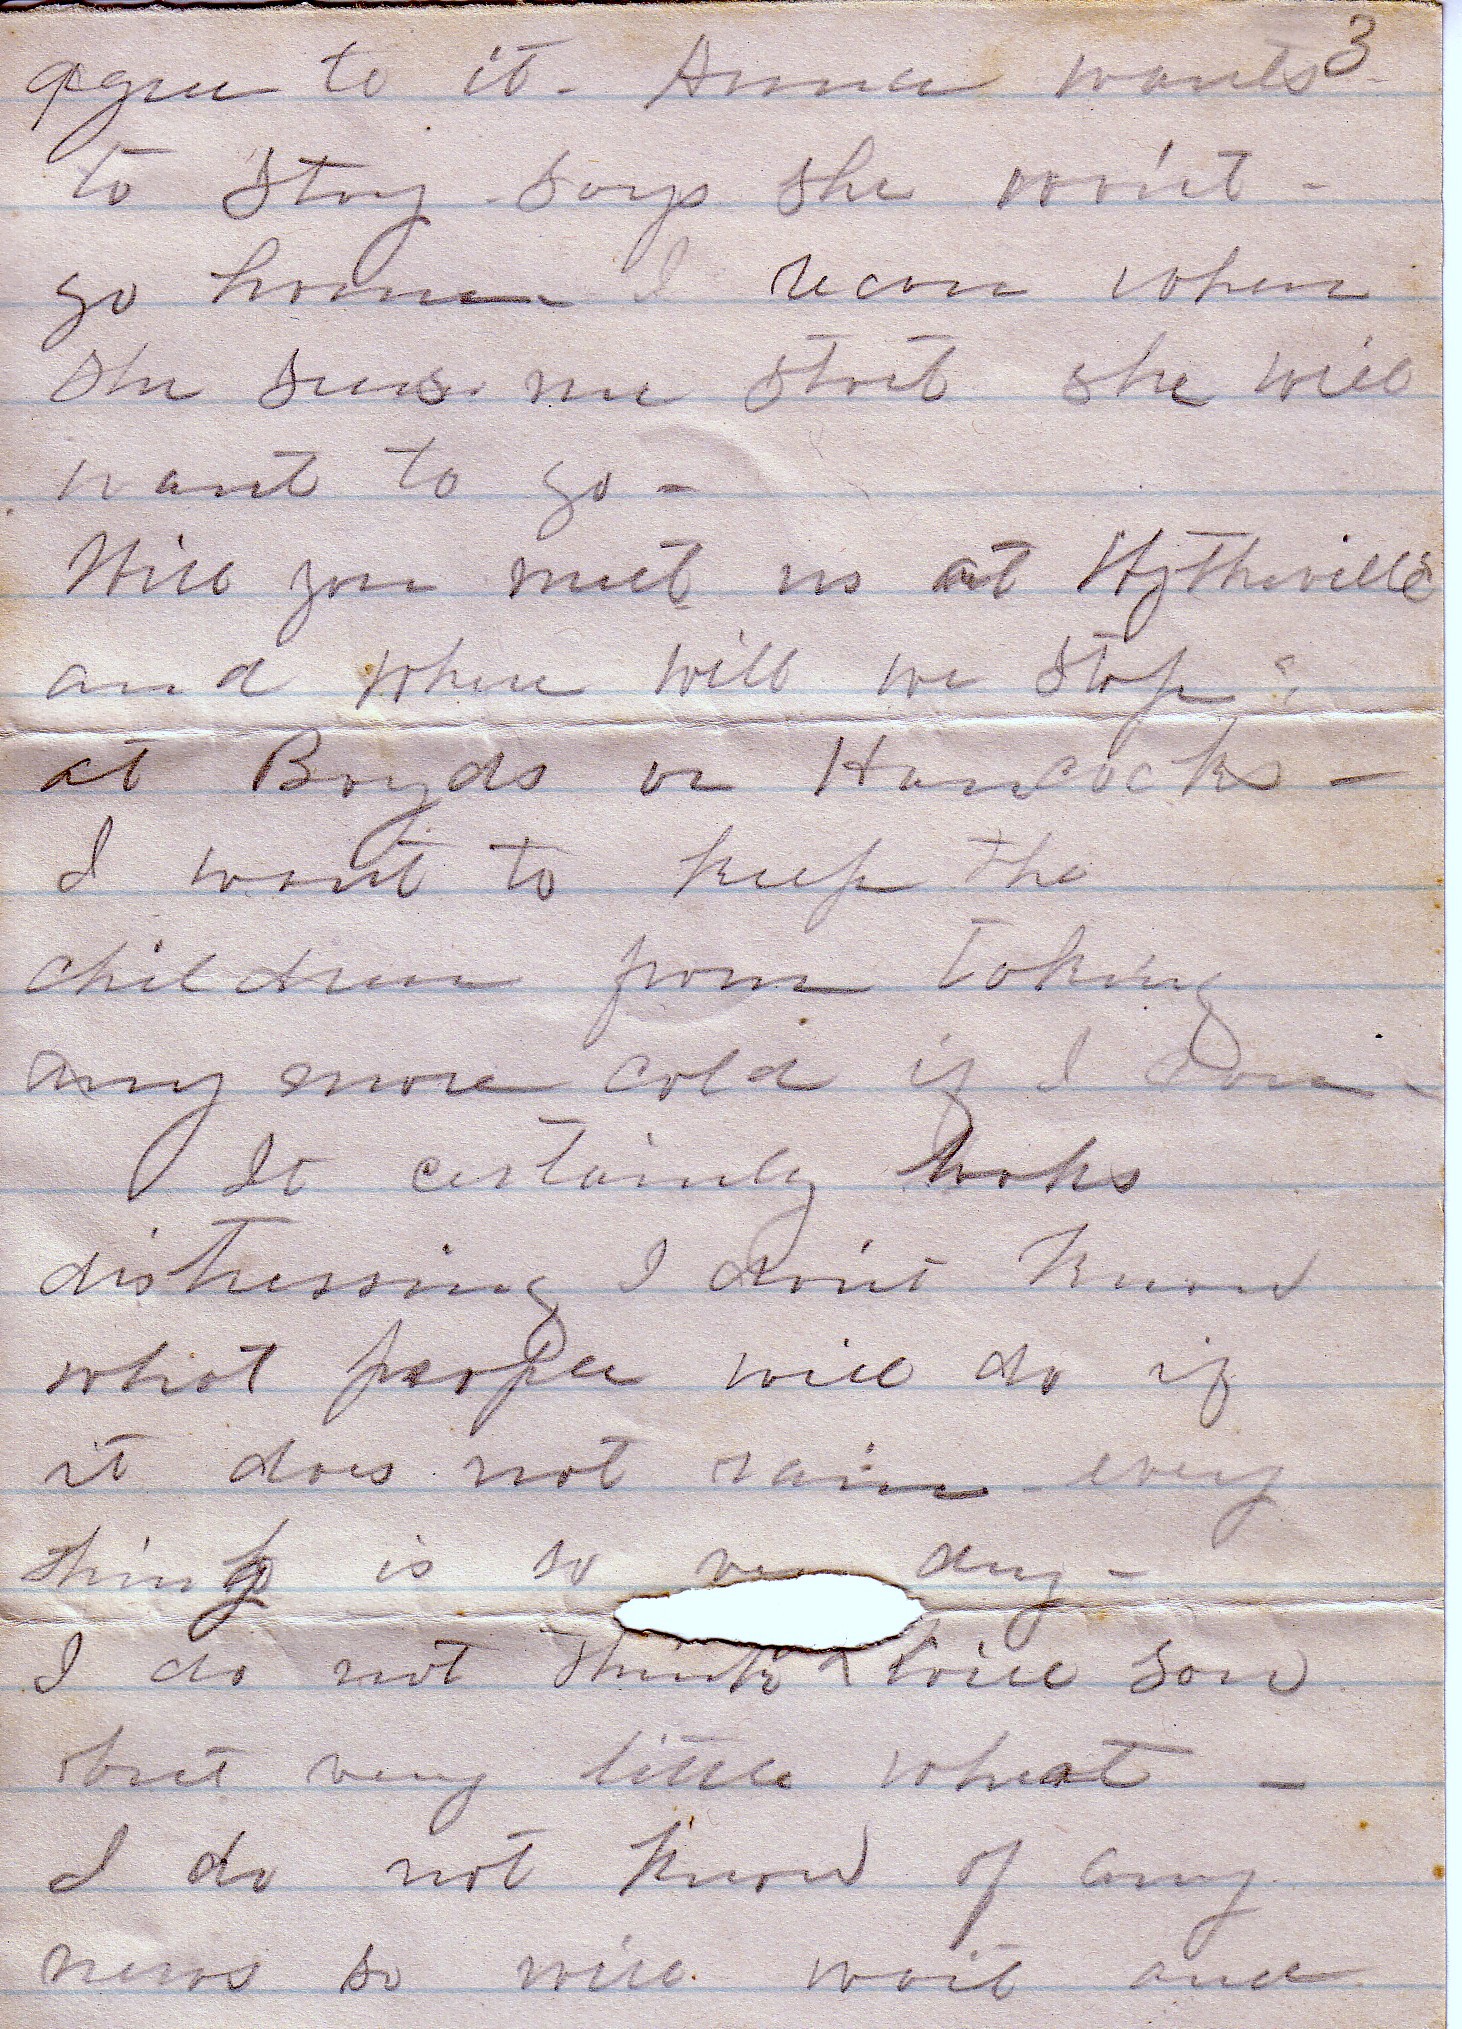 3
agree to it - Anna wants
to stay - says she won't -
go home I recon when
she sees me start she will
want to go -
Will you meet us at Wytheville
and where will we stop ?
at Boyds or Hancocks -
I want to keep the
children from taking
any more cold if I can -
It certainly looks
distressing I don't know
what people will do if
it does not rain - every
thing is so dry -
I do not think will sow
but very little wheat -
I do not know of any
news so will wait and